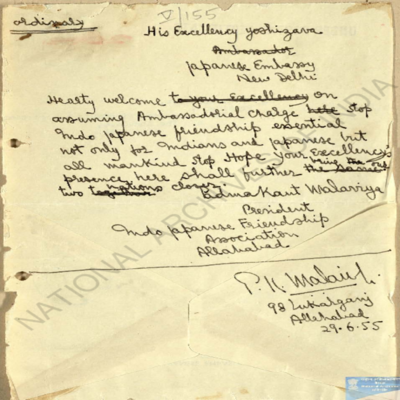 ordinary
V/155
His Excellency Yoshizava
Ambassador
Japanese Embassy
New Delhi
Hearty welcome to your Excellency on
assuming Ambassadorial charge here stop
Indo Japanese friendship essential
not only for Indians and Japanese but
all mankind stop Hope your Excellency's
presence here shall further bring the
two nations closer.
Padmakant Malaviya
President
Indo Japanese Friendship
Association
Allahabad
P. K. Malaviya
98 Lukarganj
Allahabad
29.6.55
NATIONAL ARCHIVES OF INDIA